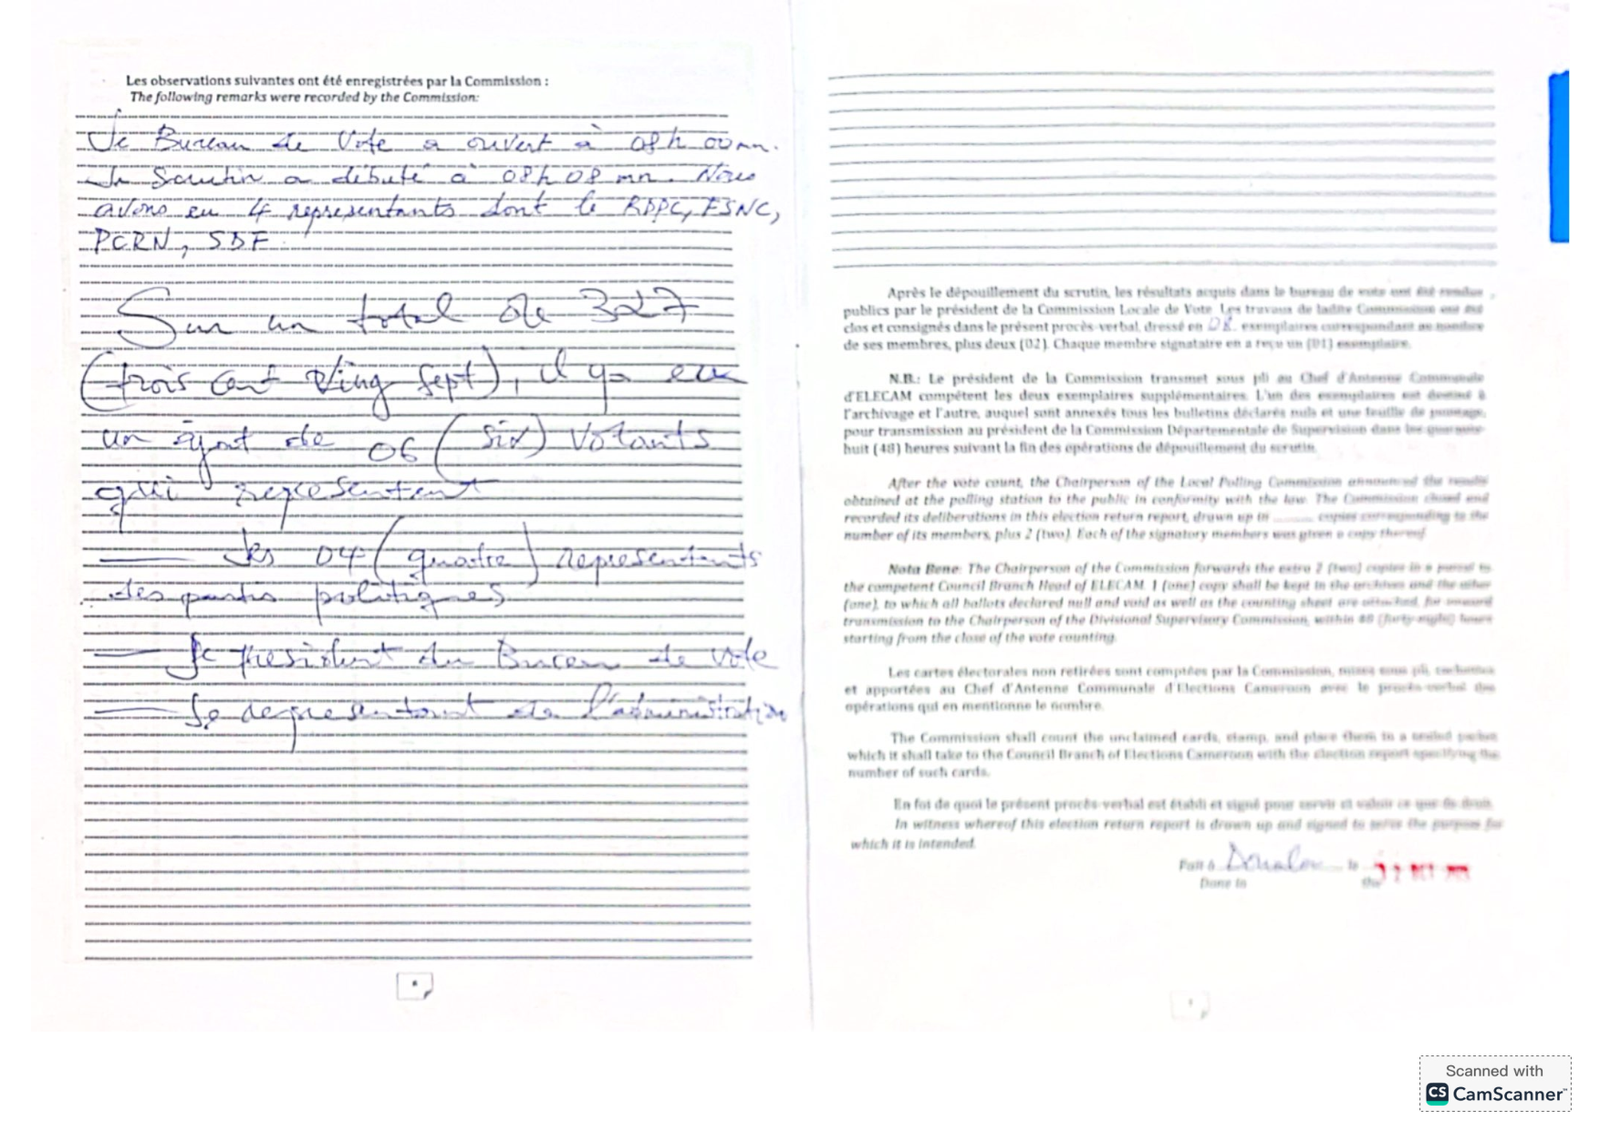 Les observations suivantes ont été enregistrées par la Commission :
The following remarks were recorded by the Commission:
Le Bureau de Vote a ouvert à 08h 00mn.
Le Scrutin a débuté à 08h 08 mn. Nous
avons eu 4 representants dont le RDPC, FSNC,
PCRN, SDF.
Sur un total de 327
(trois cent Ving sept), il y a eu
un ajout de 06 (six) Votants
qui representent
— Les 04 (quatre) representants
des partis politiques
— Le president du Bureau de vote
— Le representant de l'administration
Après le dépouillement du scrutin, les résultats acquis dans le bureau de vote ont été rendus
publics par le président de la Commission Locale de Vote. Les travaux de ladite Commission ont été
clos et consignés dans le présent procès-verbal, dressé en 08 exemplaires correspondant au nombre
de ses membres, plus deux (02). Chaque membre signataire en a reçu un (01) exemplaire.
N.B.: Le président de la Commission transmet sous pli au Chef d'Antenne Communale
d'ELECAM compétent les deux exemplaires supplémentaires. L'un des exemplaires est destiné à
l'archivage et l'autre, auquel sont annexés tous les bulletins déclarés nuls et une feuille de pointage,
pour transmission au président de la Commission Départementale de Supervision dans les quarante-
huit (48) heures suivant la fin des opérations de dépouillement du scrutin.
After the vote count, the Chairperson of the Local Polling Commission announced the results
obtained at the polling station to the public in conformity with the law. The Commission closed and
recorded its deliberations in this election return report, drawn up in ........ copies corresponding to the
number of its members, plus 2 (two). Each of the signatory members was given a copy thereof.
Nota Bene: The Chairperson of the Commission forwards the extra 2 (two) copies in a parcel to
the competent Council Branch Head of ELECAM. 1 (one) copy shall be kept in the archives and the other
(one), to which all ballots declared null and void as well as the counting sheet are attached, for onward
transmission to the Chairperson of the Divisional Supervisory Commission, within 48 (forty-eight) hours
starting from the close of the vote counting.
Les cartes électorales non retirées sont comptées par la Commission, mises sous pli, cachetées
et apportées au Chef d'Antenne Communale d'Elections Cameroon avec le procès-verbal des
opérations qui en mentionne le nombre.
The Commission shall count the unclaimed cards, stamp, and place them in a sealed packet
which it shall take to the Council Branch of Elections Cameroon with the election report specifying the
number of such cards.
En foi de quoi le présent procès-verbal est établi et signé pour servir et valoir ce que de droit.
In witness whereof this election return report is drawn up and signed to serve the purpose for
which it is intended.
Fait à Douala le
Done in the
Scanned with
CS CamScanner